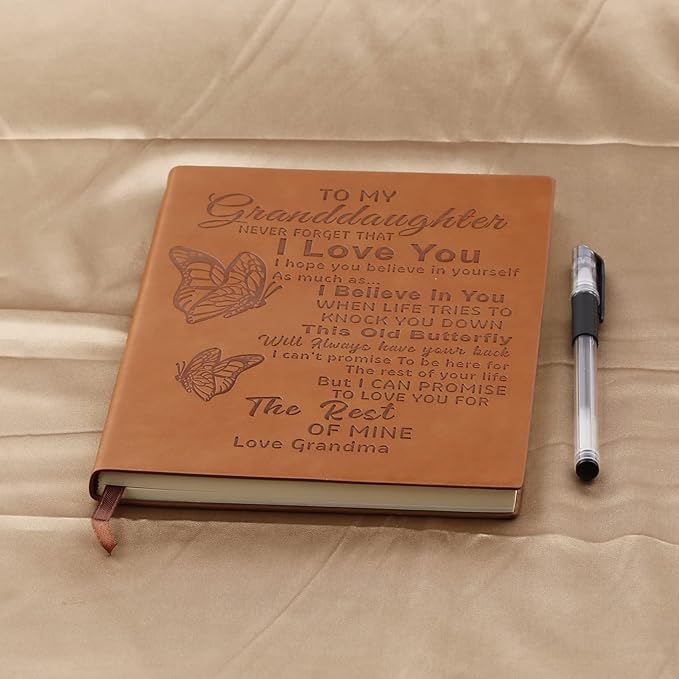 TO MY
Granddaughter
NEVER FORGET THAT
I Love You
I hope you believe in yourself
As much as...
I Believe In You
WHEN LIFE TRIES TO
KNOCK YOU DOWN
This Old Butterfly
Will Always have your back
I can't promise To be here for
The rest of your life
But I CAN PROMISE
TO LOVE YOU FOR
The Rest
OF MINE
Love Grandma